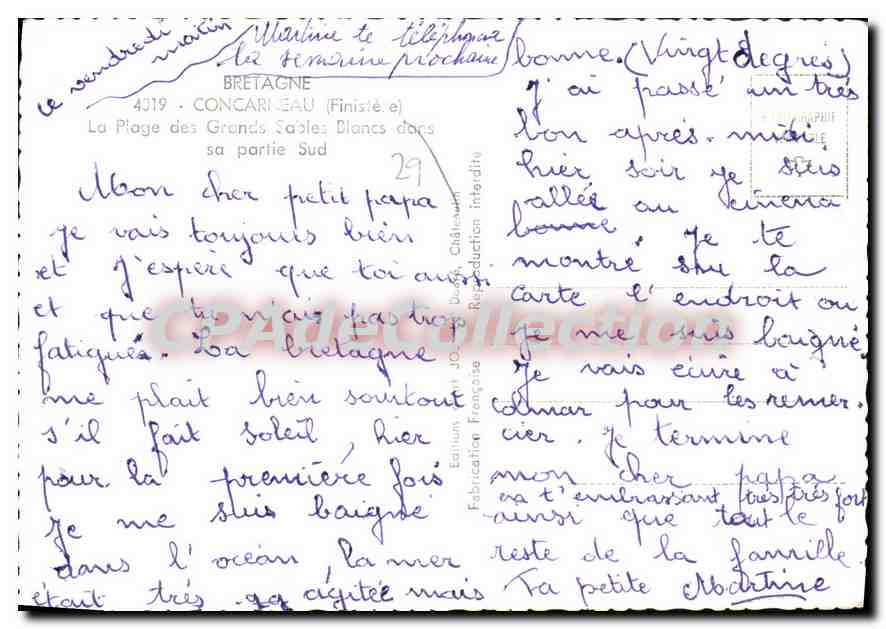 ce vendredi
matin
Martine te téléphonera
la semaine prochaine
BRETAGNE
4019 - CONCARNEAU (Finistère)
La Plage des Grands Sables Blancs dans
sa partie Sud
29
Mon cher petit papa
je vais toujours bien
et j'espère que toi aussi
et que tu n'ais pas trop
fatigués. La bretagne
me plait bien sourtout
s'il fait soleil, hier
pour la première fois
je me suis baigné
dans l'océan, la mer
était très agitée mais
bonne. (Vingt degrés)
j'ai passé un très
bon après-midi
hier soir je suis
allée au cinena
bonne. je te
montre sur la
carte l'endroit ou
je me suis baigné
je vais écrire à
colmar pour les remer-
cier. je termine
mon cher papa
en t'embrassant très très fort
ainsi que tout le
reste de la famille.
Ta petite Martine
Editions JOS Châteaulin
Fabrication Française - Reproduction Interdite
CPAdeCollection